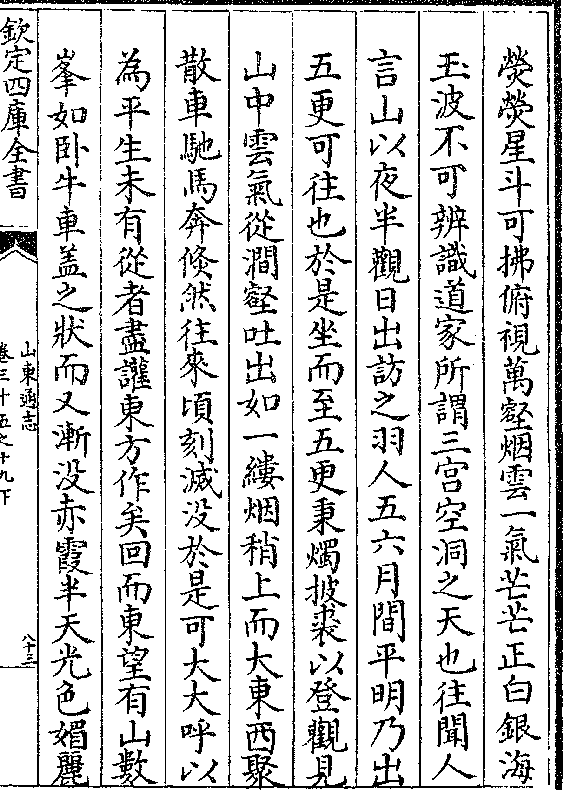 熒熒星斗可拂俯視萬壑烟雲一氣茫茫正白銀海
玉波不可辨識道家所謂三宫空洞之天也往聞人
言山以夜半觀日出訪之羽人五六月間平明乃出
五更可往也於是坐而至五更秉燭披裘以登觀見
山中雲氣從澗壑吐出如一縷烟稍上而大東西聚
散車馳馬奔倐然往來頃刻滅没於是可大大呼以
為平生未有從者盡讙東方作矣回而東望有山數
峯如卧牛車盖之狀而又漸没赤霞半天光色媚麗
欽定四庫全書
山東通志
卷三十五之十九下
八十三